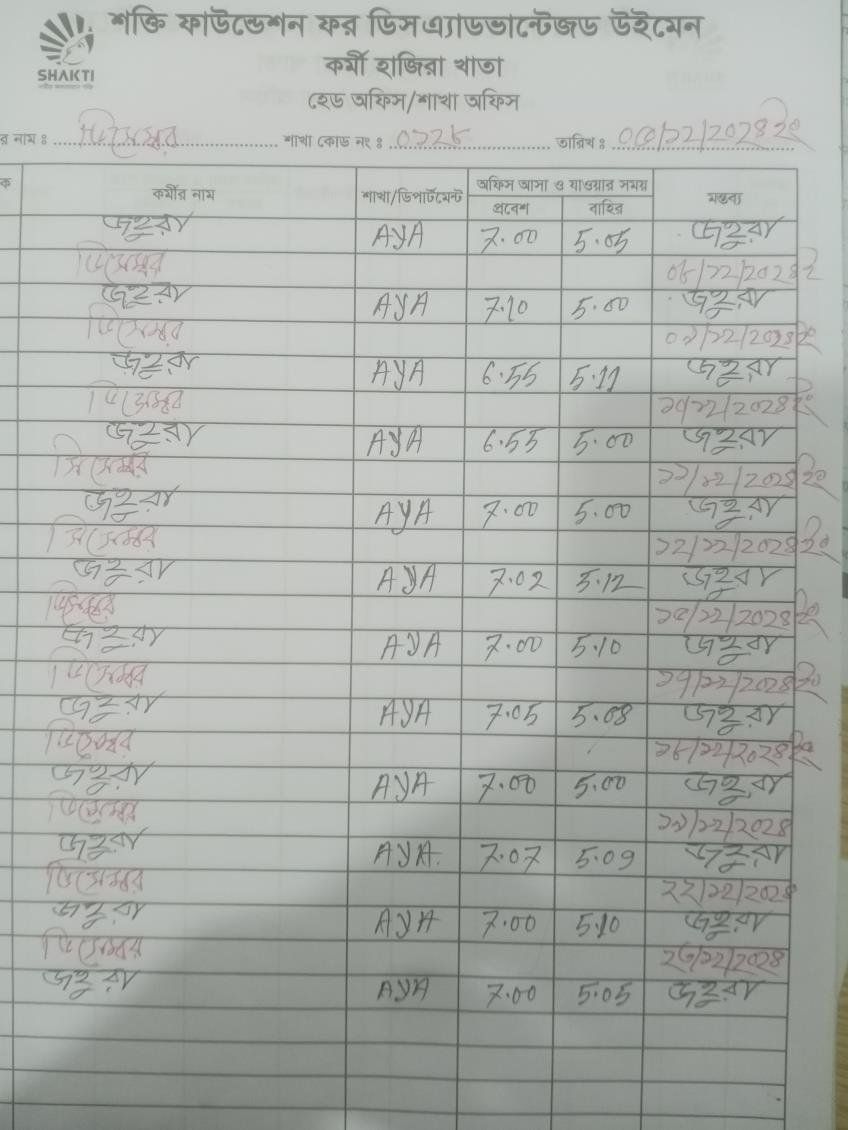 শক্তি ফাউন্ডেশন ফর ডিসএ্যাডভান্টেজড উইমেন
SHAKTI
কর্মী হাজিরা খাতা
হেড অফিস/শাখা অফিস
র নাম : ডিসেম্বর শাখা কোড নং : ০১২৮ তারিখ : /১২/২০২৪ইং
ক কর্মীর নাম শাখা/ডিপার্টমেন্ট অফিস আসা ও যাওয়ার সময় মন্তব্য
প্রবেশ বাহির
জহুরা AYA 7.00 5.05 জহুরা
ডিসেম্বর ০৮/১২/২০২৪ইং
জহুরা AYA 7.10 5.00 জহুরা
ডিসেম্বর ০৯/১২/২০২৪ইং
জহুরা AYA 6.55 5.11 জহুরা
ডিসেম্বর ১০/১২/২০২৪ইং
জহুরা AYA 6.55 5.00 জহুরা
ডিসেম্বর ১১/১২/২০২৪ইং
জহুরা AYA 7.00 5.00 জহুরা
ডিসেম্বর ১২/১২/২০২৪ইং
জহুরা AYA 7.02 5.12 জহুরা
ডিসেম্বর ১৫/১২/২০২৪ইং
জহুরা AYA 7.00 5.10 জহুরা
ডিসেম্বর ১৭/১২/২০২৪ইং
জহুরা AYA 7.05 5.08 জহুরা
ডিসেম্বর ১৮/১২/২০২৪ইং
জহুরা AYA 7.00 5.00 জহুরা
ডিসেম্বর ১৯/১২/২০২৪
জহুরা AYA 7.07 5.09 জহুরা
ডিসেম্বর ২২/১২/২০২৪
জহুরা AYA 7.00 5.10 জহুরা
ডিসেম্বর ২৩/১২/২০২৪
জহুরা AYA 7.00 5.05 জহুরা